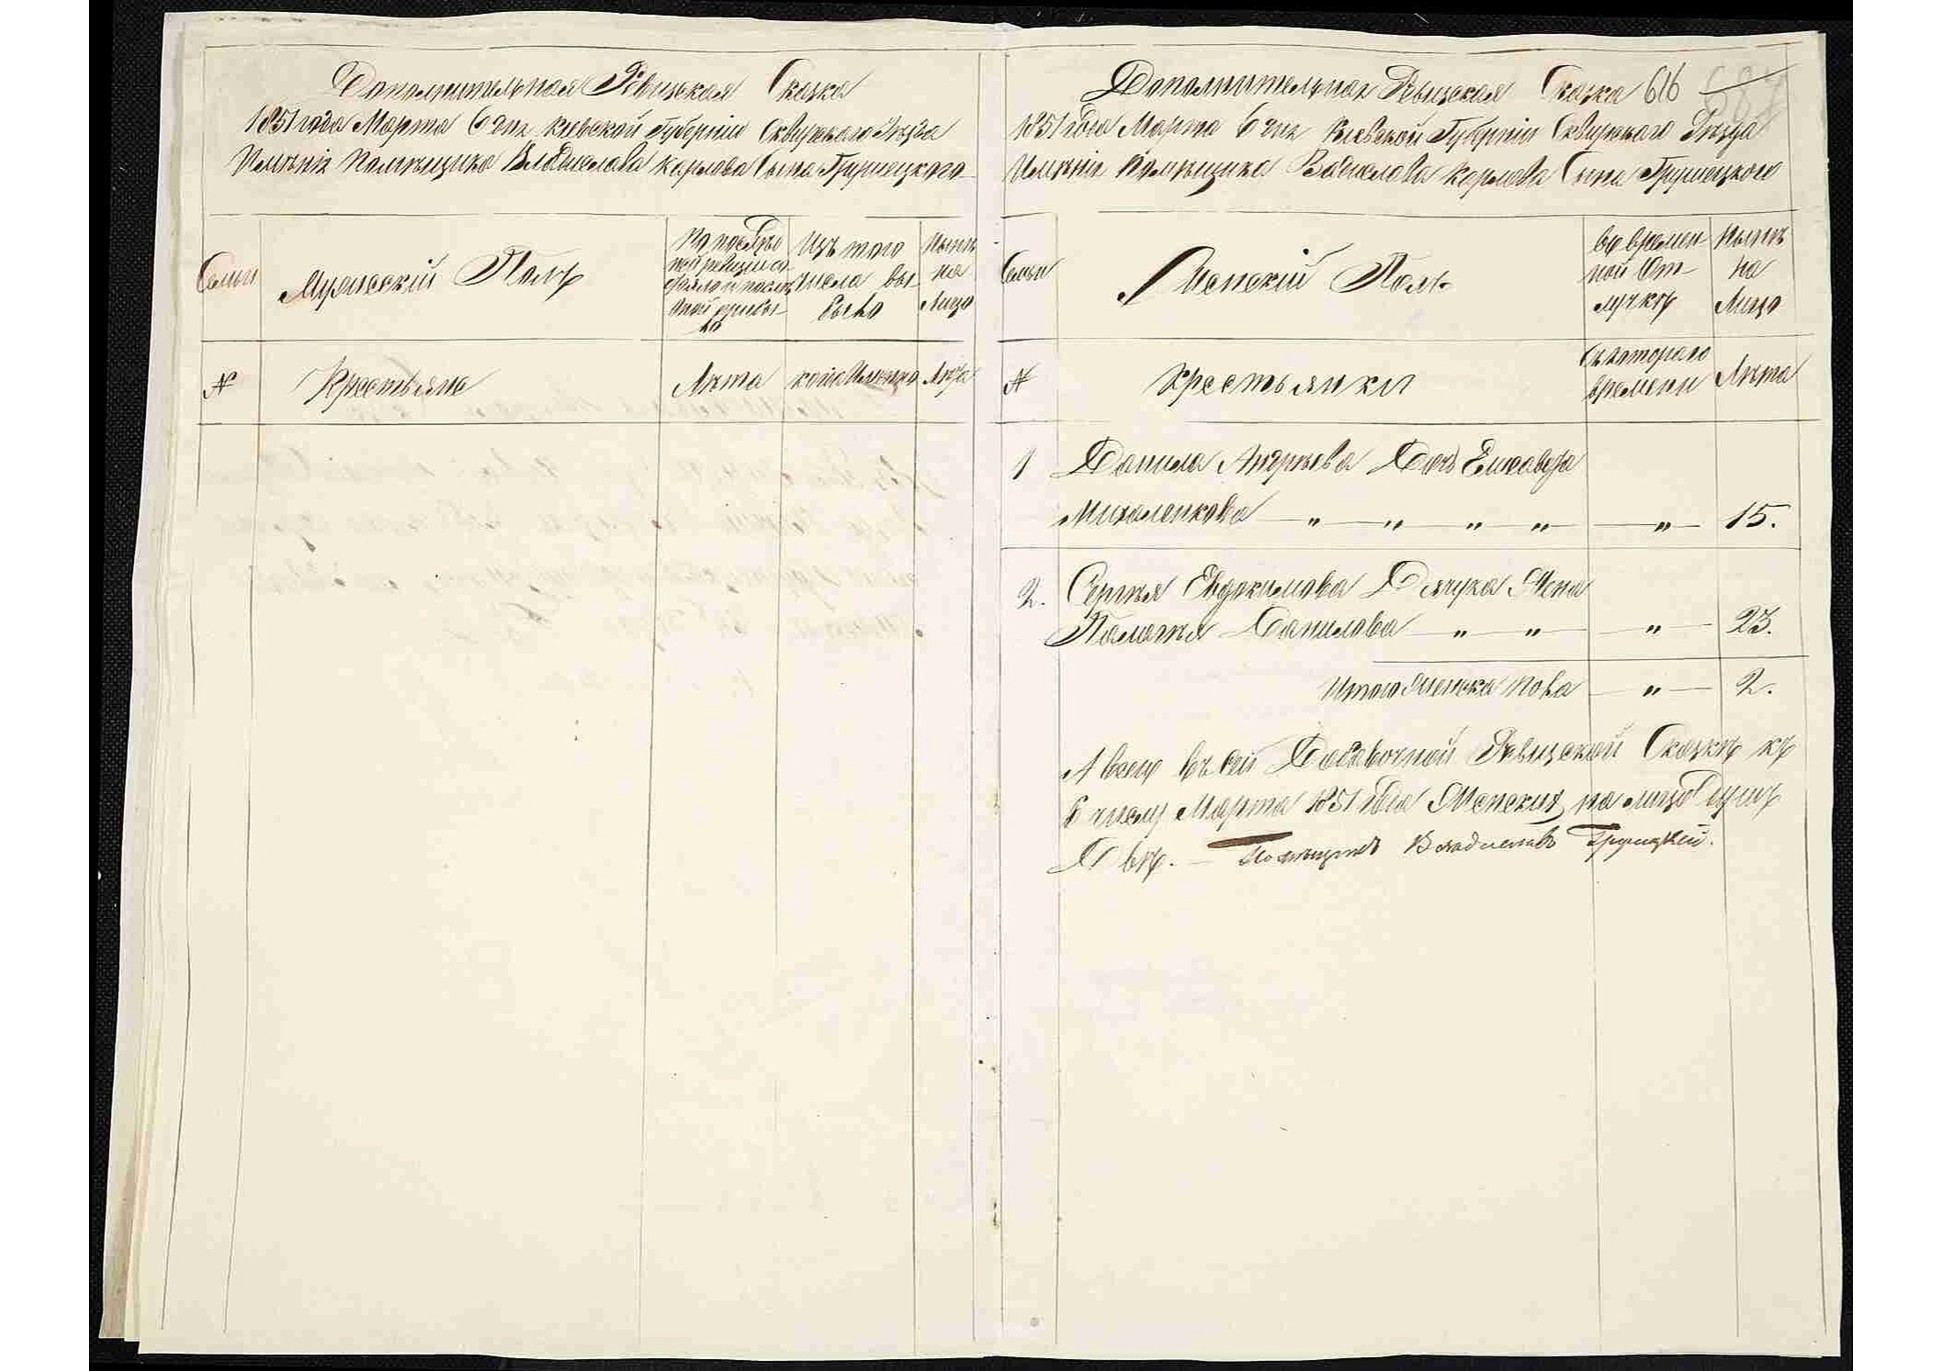 Дополнительная Ревизская Сказка
1851 года Марта 6 дня Киевской Губернии Сквирского Уезда
Имение Помещика Владислава Карлова Сына Грушецкого
Семьи
Мужеский Полъ
По последней ревизии со-
стояло и после
оной прибы-
ло
Изъ того
числа вы-
было
Ныне
на
лицо
№
Крестьяне
Лета
когда именно
Лета
Дополнительная Ревизская Сказка 616
1851 года Марта 6 дня Киевской Губернии Сквирского Уезда
Имение Помещика Владислава Карлова Сына Грушецкого
Семьи
Женский Полъ
Во времен
ной От-
лучке
Ныне
на
Лицо
№
Крестьянки
Съ котораго
времени
Лета
1 Данила Андреева Дочь Елисавета
Михаленкова — „ — „ — „ — „ — „ — 15.
2. Сергея Евдокимова Дячука Жена
Палагея Данилова — „ — „ — „ — 23.
Итого Женска пола — „ — 2.
А всего въ сей Добавочной Ревизской Сказке къ
6 числу Марта 1851 года Женскихъ на лицо Душъ
Две. — Помещикъ Владиславъ Грушецкий.